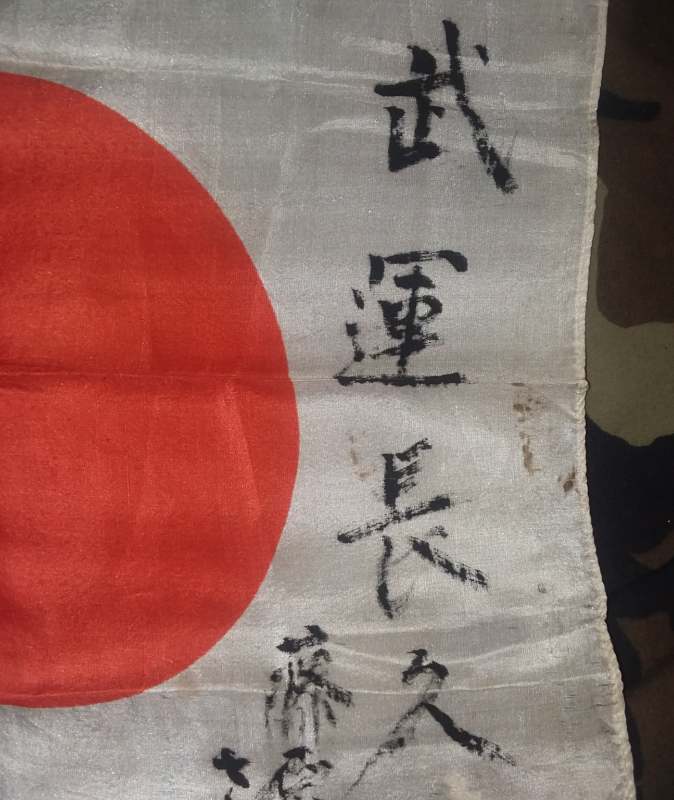 武運長久
藤